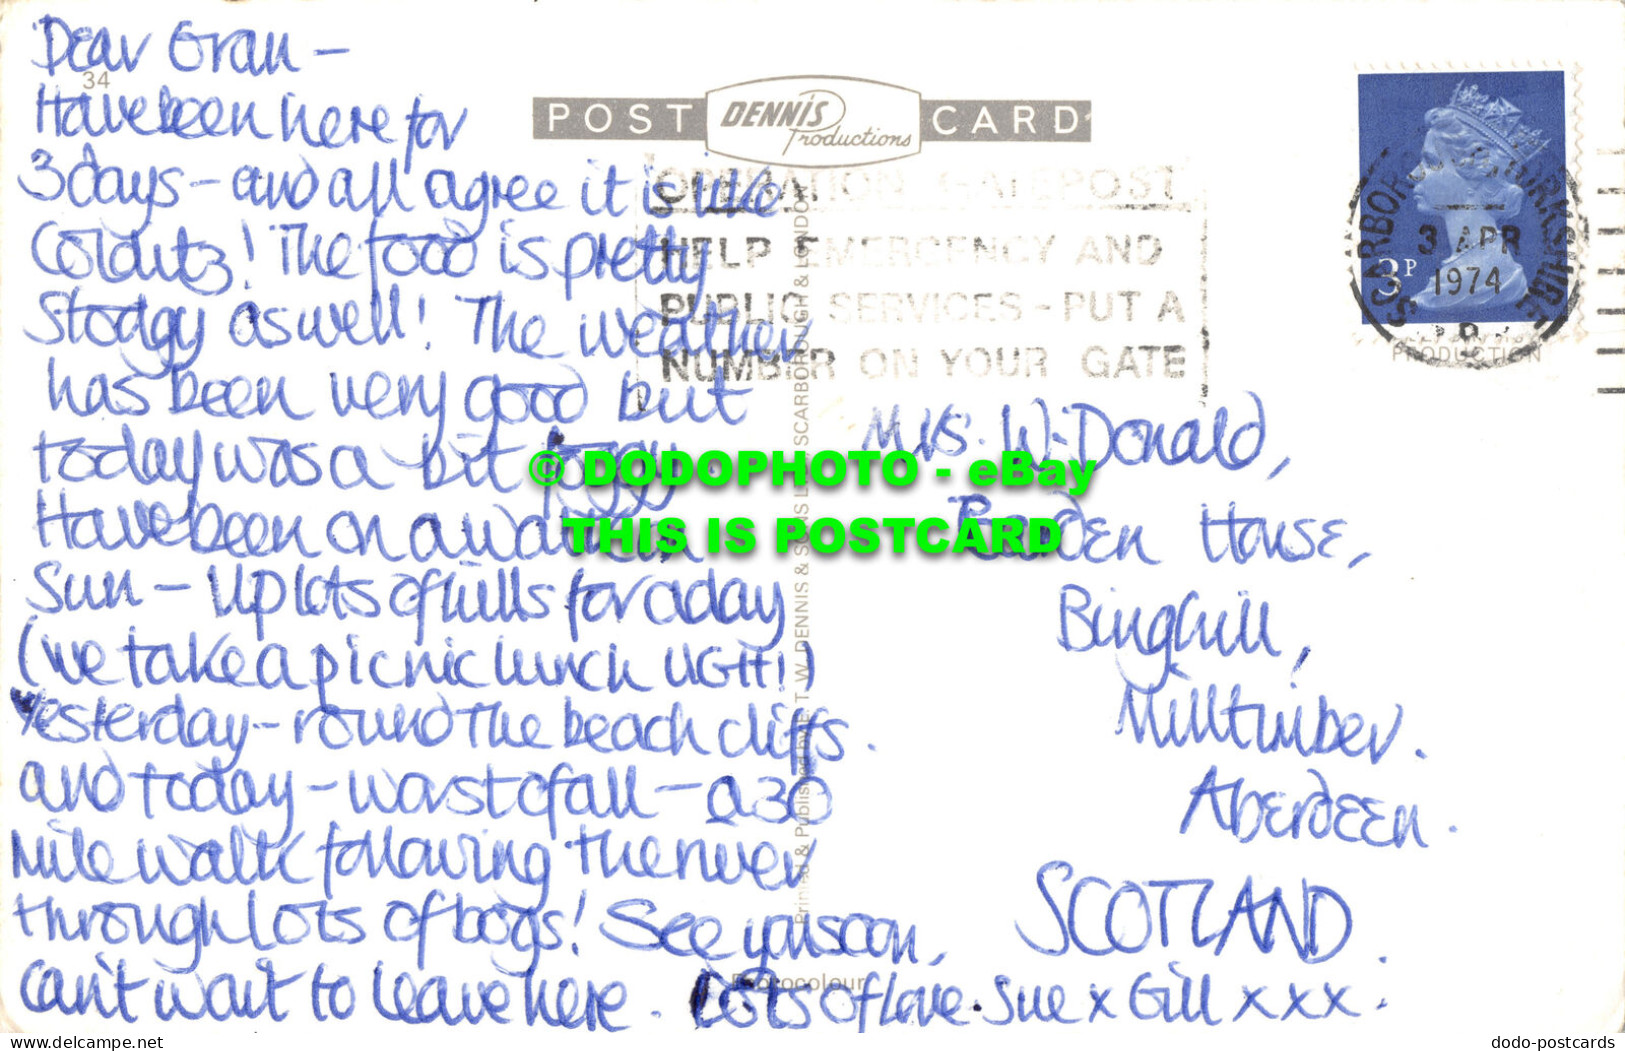 Dear Gran -
Have been here for
3 days - and all agree it is like
Colditz! The food is pretty
Stodgy as well! The weather
has been very good but
today was a bit foggy
Have been on a walk in
Sun - Up lots of hills for a day
(we take a picnic lunch UGH!)
Yesterday - round the beach cliffs.
and today - worst of all - a 30
Mile walk following the river
through lots of bogs! See you soon,
Can't wait to leave here. Lots of Love. Sue x Gill x x x.
34
POST DENNIS Productions CARD
OPERATION GATEPOST
HELP EMERGENCY AND
PUBLIC SERVICES - PUT A
NUMBER ON YOUR GATE
3P
SCARBOROUGH YORKSHIRE
3 APR
1974
PRODUCTION
Mrs. W. Donald,
House,
Binghill,
Milltimber.
Aberdeen.
SCOTLAND.
Printed & Published by E. T. W. DENNIS & SONS LTD. SCARBOROUGH & LONDON
Photocolour
© DODOPHOTO - eBay
THIS IS POSTCARD
www.delcampe.net
dodo-postcards